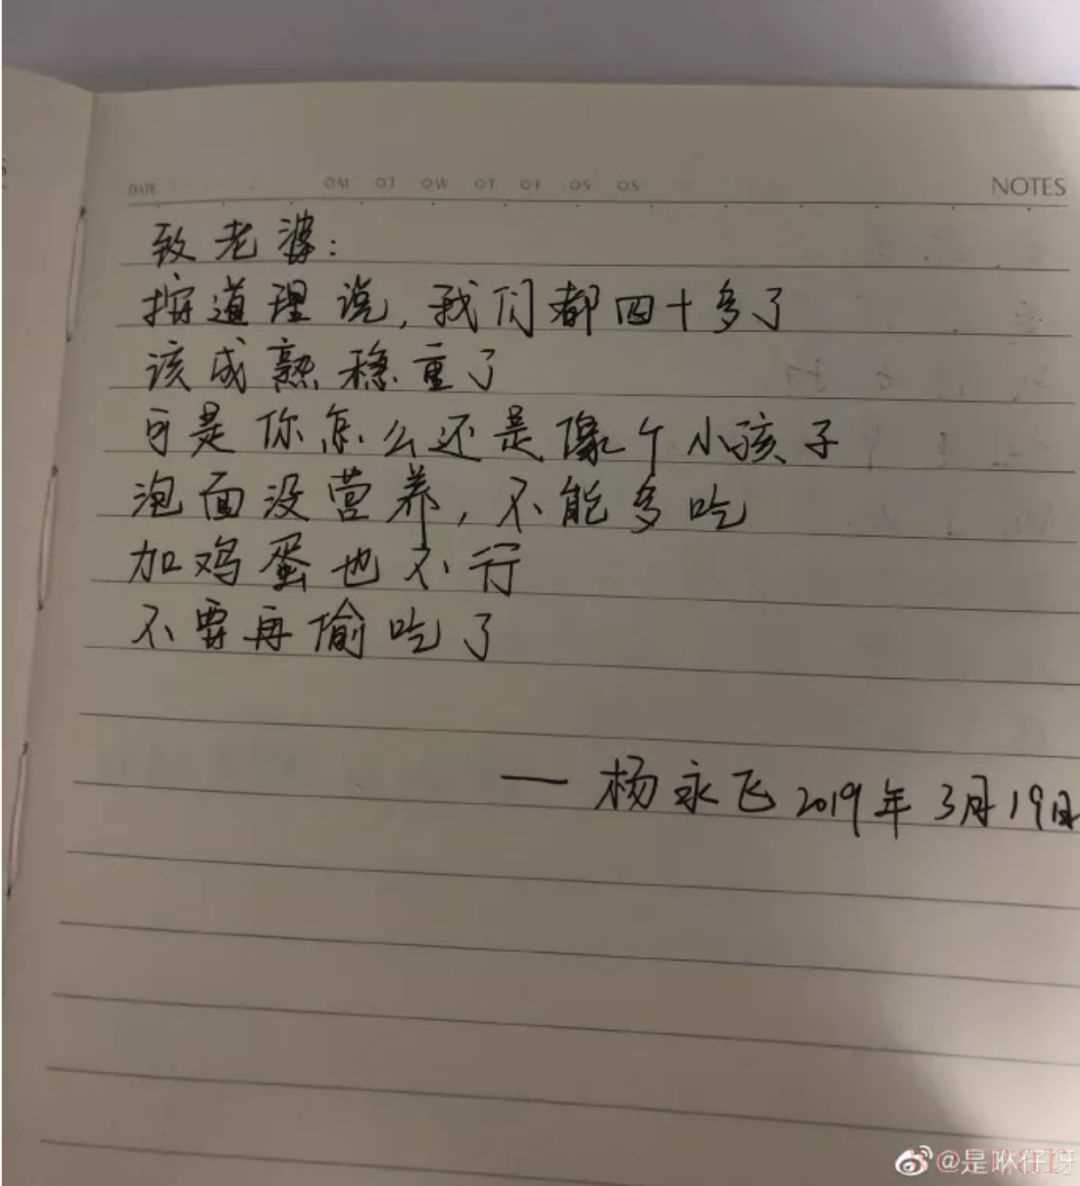 DATE OM OT OW OT OF OS OS NOTES
致老婆：
按道理说,我们都四十多了
该成熟稳重了
可是你怎么还是像个小孩子
泡面没营养,不能多吃
加鸡蛋也不行
不要再偷吃了
— 杨永飞 2019年3月19日
@是咻仔呀